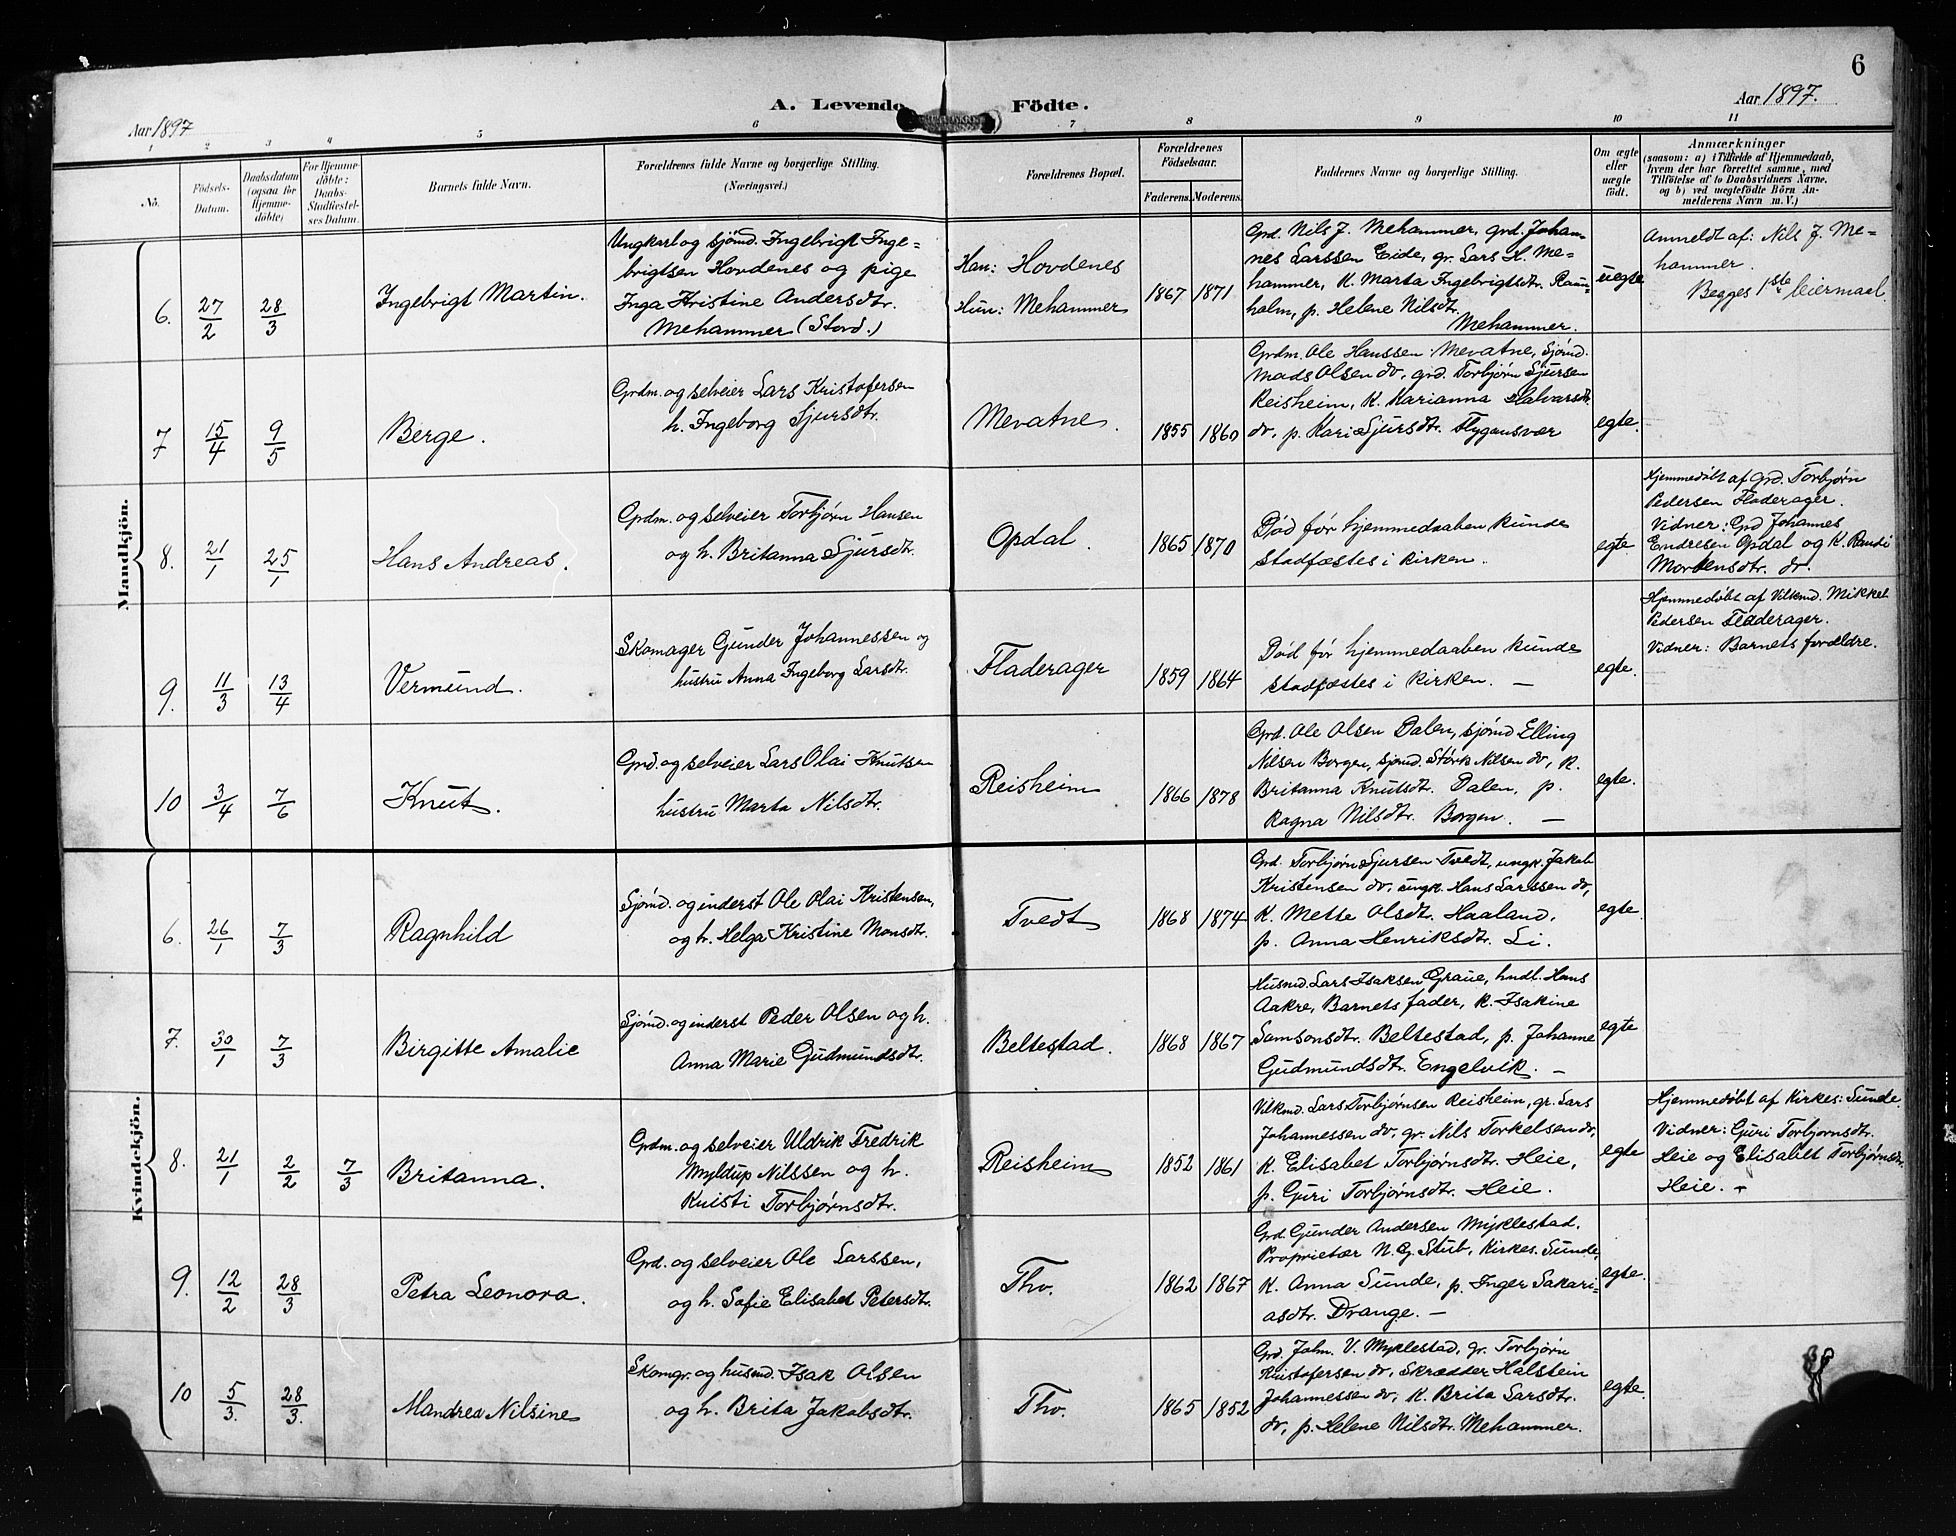 6
A. Levende Födte.
Aar 1897
Aar 1897.
1 2 3 4 5 6 7 8 9 10 11
No.
Födsels-Datum.
Daabsdatum (ogsaa for Hjemmedöbte)
For Hjemmedöbte: Daabs-Stadfæstelses Datum.
Barnets fulde Navn.
Forældrenes fulde Navne og borgerlige Stilling.
(Næringsvei.)
Forældrenes Bopæl.
Forældrenes Födselsaar.
Faderens. Moderens.
Faddernes Navne og borgerlige Stilling.
Om ægte eller uægte födt.
Anmærkninger
(saasom: a) i Tilfælde af Hjemmedaab,
hvem der har forrettet samme, med
Tilföielse af to Daabsvidners Navne,
og b) ved uegtefödte Börn An-
melderens Navn m. V.)
Mandkjön.
6. 27/2 28/3
Ingebrigt Martin.
Ungkarl og sjömd. Ingebrigt Inge-
brigtsen Hovdenes og pige
Inga Kristine Andersdtr.
Mehammer (Stord.)
Han: Hovdenes
Hun: Mehammer
1867 1871
Grd. Nils J. Mehammer, grd. Johan-
nes Larssen Eide, gr. Lars H. Me-
hammer, K. Marta Ingebrigtsdtr.
holm, p. Helene Nilsdtr.
Mehammer.
uegte
Anmeldt af: Nils J. Me-
hammer.
Begges 1ste leiermaal.
7 15/4 9/5
Berge.
Grdm. og selveier Lars Kristofersen
h. Ingeborg Sjursdtr.
Mevatne.
1855 1860
Grdm. Ole Hanssen Mevatne, Sjömd.
Mads Olsen do, grd. Torbjørn Sjursen
Reisheim, K. Marianna Halvarsdtr.
do, p. Kari Sjursdtr. Flygansvær
egte.
8. 21/1 25/1
Hans Andreas.
Grdm. og selveier Torbjørn Hansen
og h. Britanna Sjursdtr.
Opdal.
1865 1870
Død før hjemmedaaben kunde
stadfæstes i kirken.
egte
Hjemmedøbt af grd. Torbjørn
Pedersen Fladerager.
Vidner: Grd Johannes
Endresen Opdal og K. Randi
Mortensdtr. do.
9. 11/3 13/4
Vermund.
Skomager Gunder Johannessen og
hustru Anna Ingeborg Larsdtr.
Fladerager
1859 1864
Død før hjemmedaaben kunde
stadfæstes i kirken. —
egte.
Hjemmedøbt af Vilkmd. Mikkel
Pedersen Fladerager.
Vidner: Barnets forældre.
10 3/4 7/6
Knut.
Grd. og selveier Lars Olai Knutsen
hustru Marta Nilsdtr.
Reisheim
1866 1878
Grd. Ole Olsen Dalen, sjømd Elling
Nilsen Borgen, sjømd. Størk Nilsen do, K.
Britanna Knutsdt. Dalen, p.
Ragna Nilsdtr. Borgen. —
egte.
Kvindekjön.
6. 26/1 7/3
Ragnhild
Sjömd. og inderst Ole Olai Kristensen,
og h. Helga Kristine Monsdtr.
Tvedt
1868 1874
Grd. Torbjørn Sjursen Tvedt, ungk. Jakob
Kristensen do, ungk. Hans Larssen do,
K. Mette Olsdt. Haaland,
p. Anna Henriksdtr. Li.
egte.
7. 30/1 7/3
Birgitte Amalie
Sjömd. og inderst Peder Olsen og h.
Anna Marie Gudmundsdtr.
Beltestad.
1868 1867
Husmd. Lars Isaksen Graue, hndl. Hans
Aakre, Barnets fader, K. Isakine
Samsonsdtr. Beltestad, p. Johanne
Gudmundsdtr. Engelvik. —
egte
8. 21/1 2/2 7/3
Britanna.
Grdm. og selveier Uldrik Fredrik
Myldtup Nilssen og h.
Kristi Torbjørnsdtr.
Reisheim
1852 1861
Vilkmd. Lars Torbjørnsen Reisheim, gr. Lars
Johannessen do, gr. Nils Torkelsen do,
K. Elisabet Torbjørnsdtr. Heie,
p. Guri Torbjørnsdtr. Heie.
egte
Hjemmedøbt af Kirkes: Sunde.
Vidner: Guri Torbjørnsdtr.
Heie og Elisabet Torbjørnsdtr.
Heie. —
9. 12/2 28/3
Petra Leonora.
Grd. og selveier Ole Larssen,
og h. Sofie Elisabet Petersdtr.
Tho.
1862 1867
Grd. Gunder Andersen Myklestad,
Proprietær N. G. Stub, Kirkes. Sunde,
K. Anna Sunde, p. Inger Sakari-
asdtr. Drange. —
egte.
10 5/3. 28/3.
Mandrea Nilsine
Skomgr. og husmd. Isak Olsen
og h. Brita Jakobsdtr.
Tho.
1865 1852
Grd. Johm. V. Myklestad, gr. Torbjørn
Kristofersen do, Skrædder Halstein
Johannessen do, K. Brita Larsdtr.
do, p. Helene Nilsdtr. Mehammer.
egte.